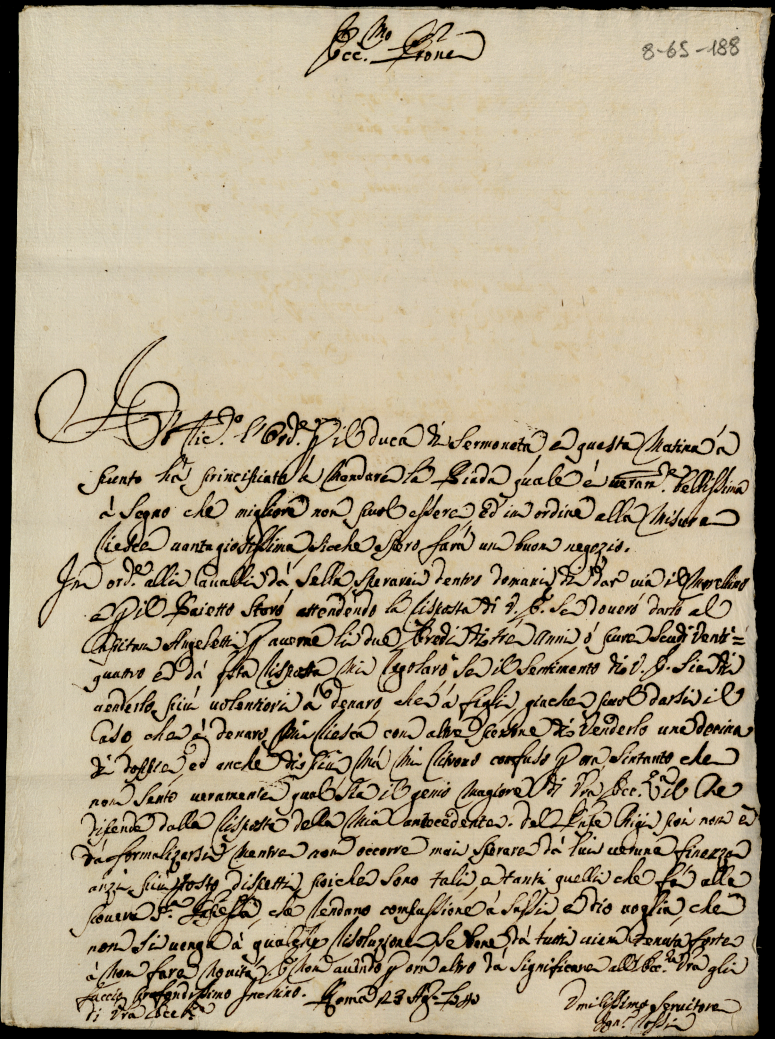 Ecc.mo Prone
8-65-188
Ho ric.to l'Ord.e p il Duca di Sermoneta, e questa Matina à
punto hà principiato à Mandare la Biada quale è veram.te bellissima
à Segno che migliore non puol essere ed in ordine alla Misura
riesce vantagiosissima, sicche spero farà un buon negozio.
In ord.e alli Cavalli dà Sella sperarei dentro domani di dar via il Morellino
e p il Baietto Starò attendendo la risposta di V. E. Se doverò darlo al
Capitan Angeletti p averne li due di trè anni ò pure Scudi Venti=
quatro e dà q.sta risposta Mi regolarò se il Sentimento di V. E. Sia di
venderlo più volontieri à denaro, che à figli, giache puol darsi il
Caso che à denaro Mi riesca con altre persone di Venderlo una decina
di doppie, ed anche di più Mà Mi ritrovo confuso p ora Sintanto che
non Sento veramente qual sia il genio Magiore di Vra Ecc.za il che
dipende dalla risposta della Mia antecedente. Del poi non è
dà formalizarsi Mentre non occorre mai sperare dà lui veruna finezza
anzi più tosto dispetti, poiche sono tali, e tanti quelli che fà alla
povera S.ra che rendano confussione à Sassi, e dio voglia, che
non Si venga à qualche risoluzione Se bene dà tutti vien tenuta forte
à Non fare Novità, e Non avendo p ora altro dà significare all'Ecc.za Vra gli
faccio profondissimo Inchino. Roma 23
di Vra Eccell.za
Umilissimo Servitore